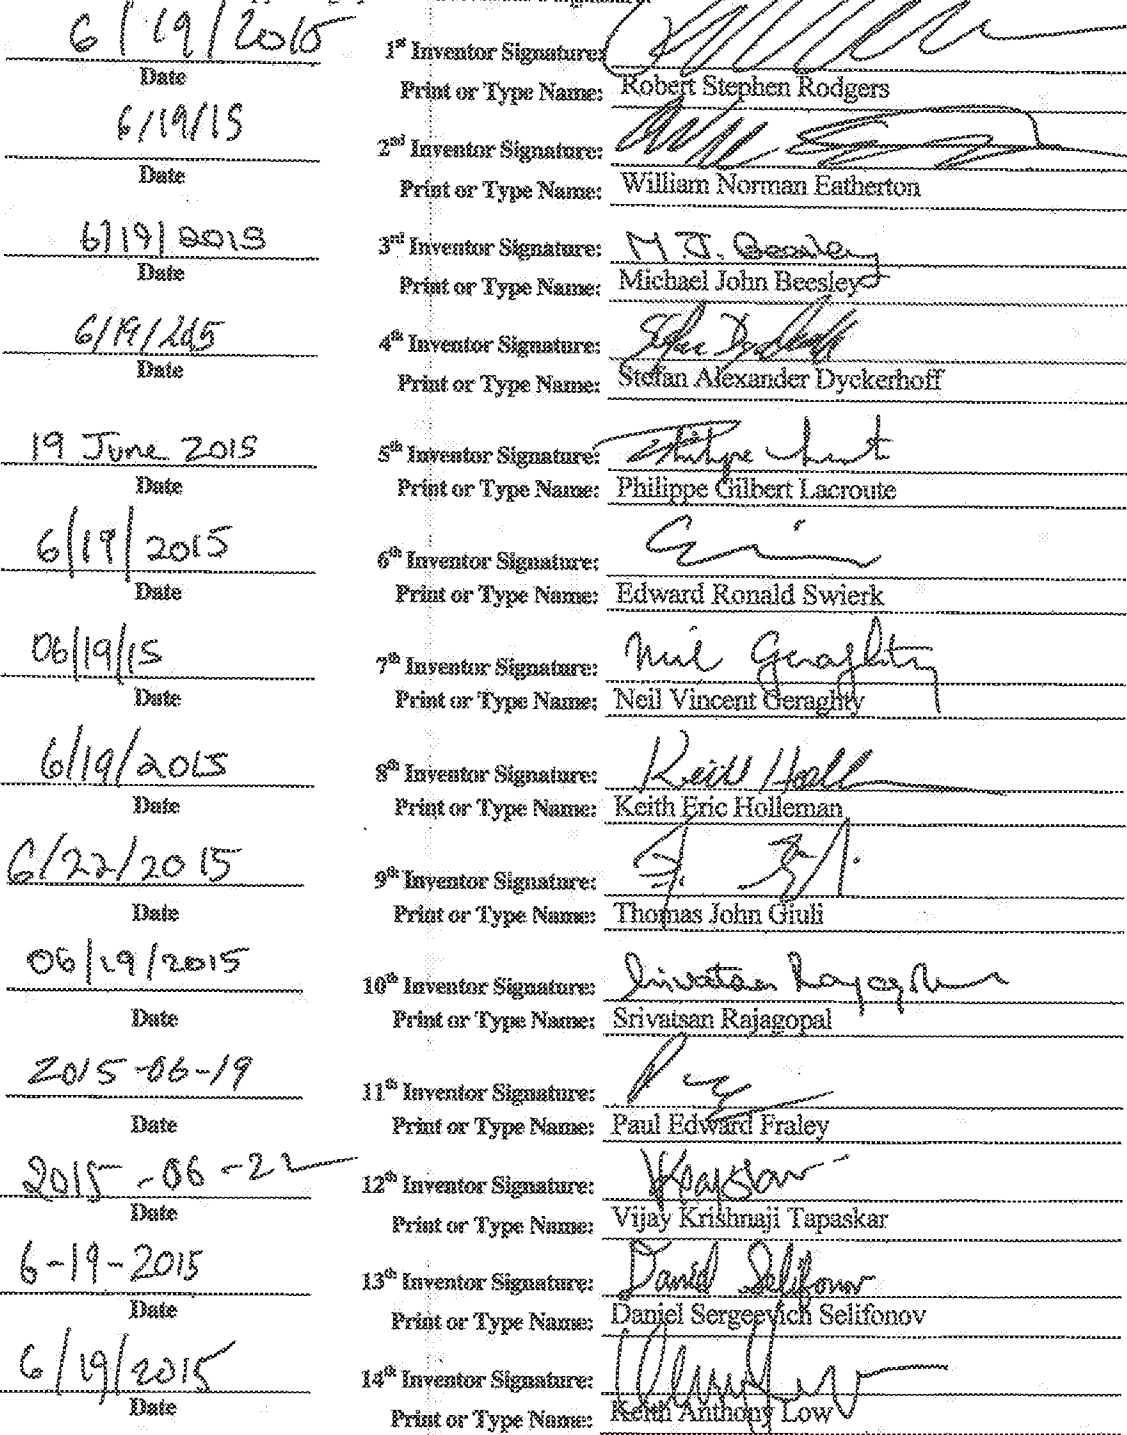 6/19/2015
1st Inventor Signature:
Date
Print or Type Name: Robert Stephen Rodgers
6/19/15
2nd Inventor Signature:
Date
Print or Type Name: William Norman Eatherton
6/19/2015
3rd Inventor Signature: M J. Beesley
Date
Print or Type Name: Michael John Beesley
6/19/2015
4th Inventor Signature: Stefan Dyckerhoff
Date
Print or Type Name: Stefan Alexander Dyckerhoff
19 June 2015
5th Inventor Signature: Philippe Lacroute
Date
Print or Type Name: Philippe Gilbert Lacroute
6/19/2015
6th Inventor Signature:
Date
Print or Type Name: Edward Ronald Swierk
06/19/15
7th Inventor Signature: Neil Geraghty
Date
Print or Type Name: Neil Vincent Geraghty
6/19/2015
8th Inventor Signature: Keith Holleman
Date
Print or Type Name: Keith Eric Holleman
6/22/2015
9th Inventor Signature:
Date
Print or Type Name: Thomas John Giuli
06/19/2015
10th Inventor Signature: Srivatsan Rajagopal
Date
Print or Type Name: Srivatsan Rajagopal
2015-06-19
11th Inventor Signature:
Date
Print or Type Name: Paul Edward Fraley
2015-06-22
12th Inventor Signature:
Date
Print or Type Name: Vijay Krishnaji Tapaskar
6-19-2015
13th Inventor Signature: Daniel Selifonov
Date
Print or Type Name: Daniel Sergeevich Selifonov
6/19/2015
14th Inventor Signature:
Date
Print or Type Name: Keith Anthony Low